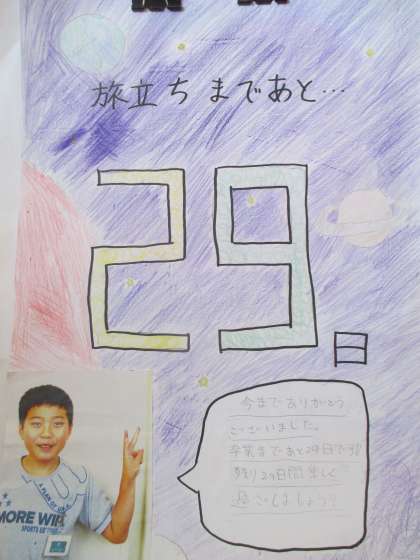 旅立ちまであと…
29日
今までありがとう
ございました。
卒業まであと29日です。
残り29日間楽しく
過ごしましょう!
MORE WIN
SPORTS